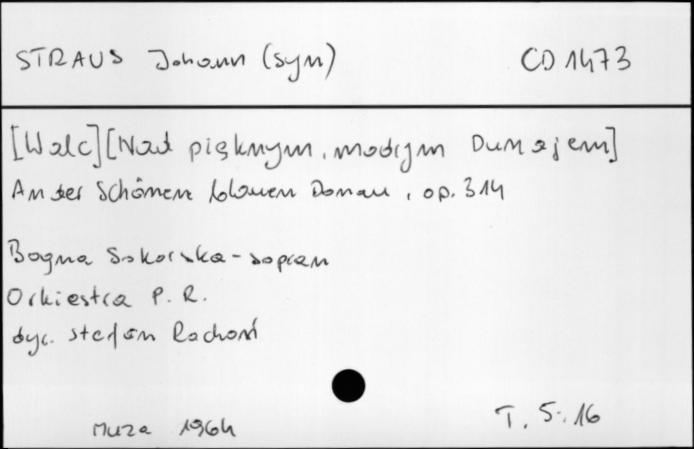 STRAUS Johann (syn) CD 1473
[Walc] [Nad pięknym, modrym Dunajem]
An der Schönen blauen Donau, op. 314
Bogna Sokorska - sopran
Orkiestra P. R.
dyr. Stefan Rachoń
Muza 1964 T. 5. 16